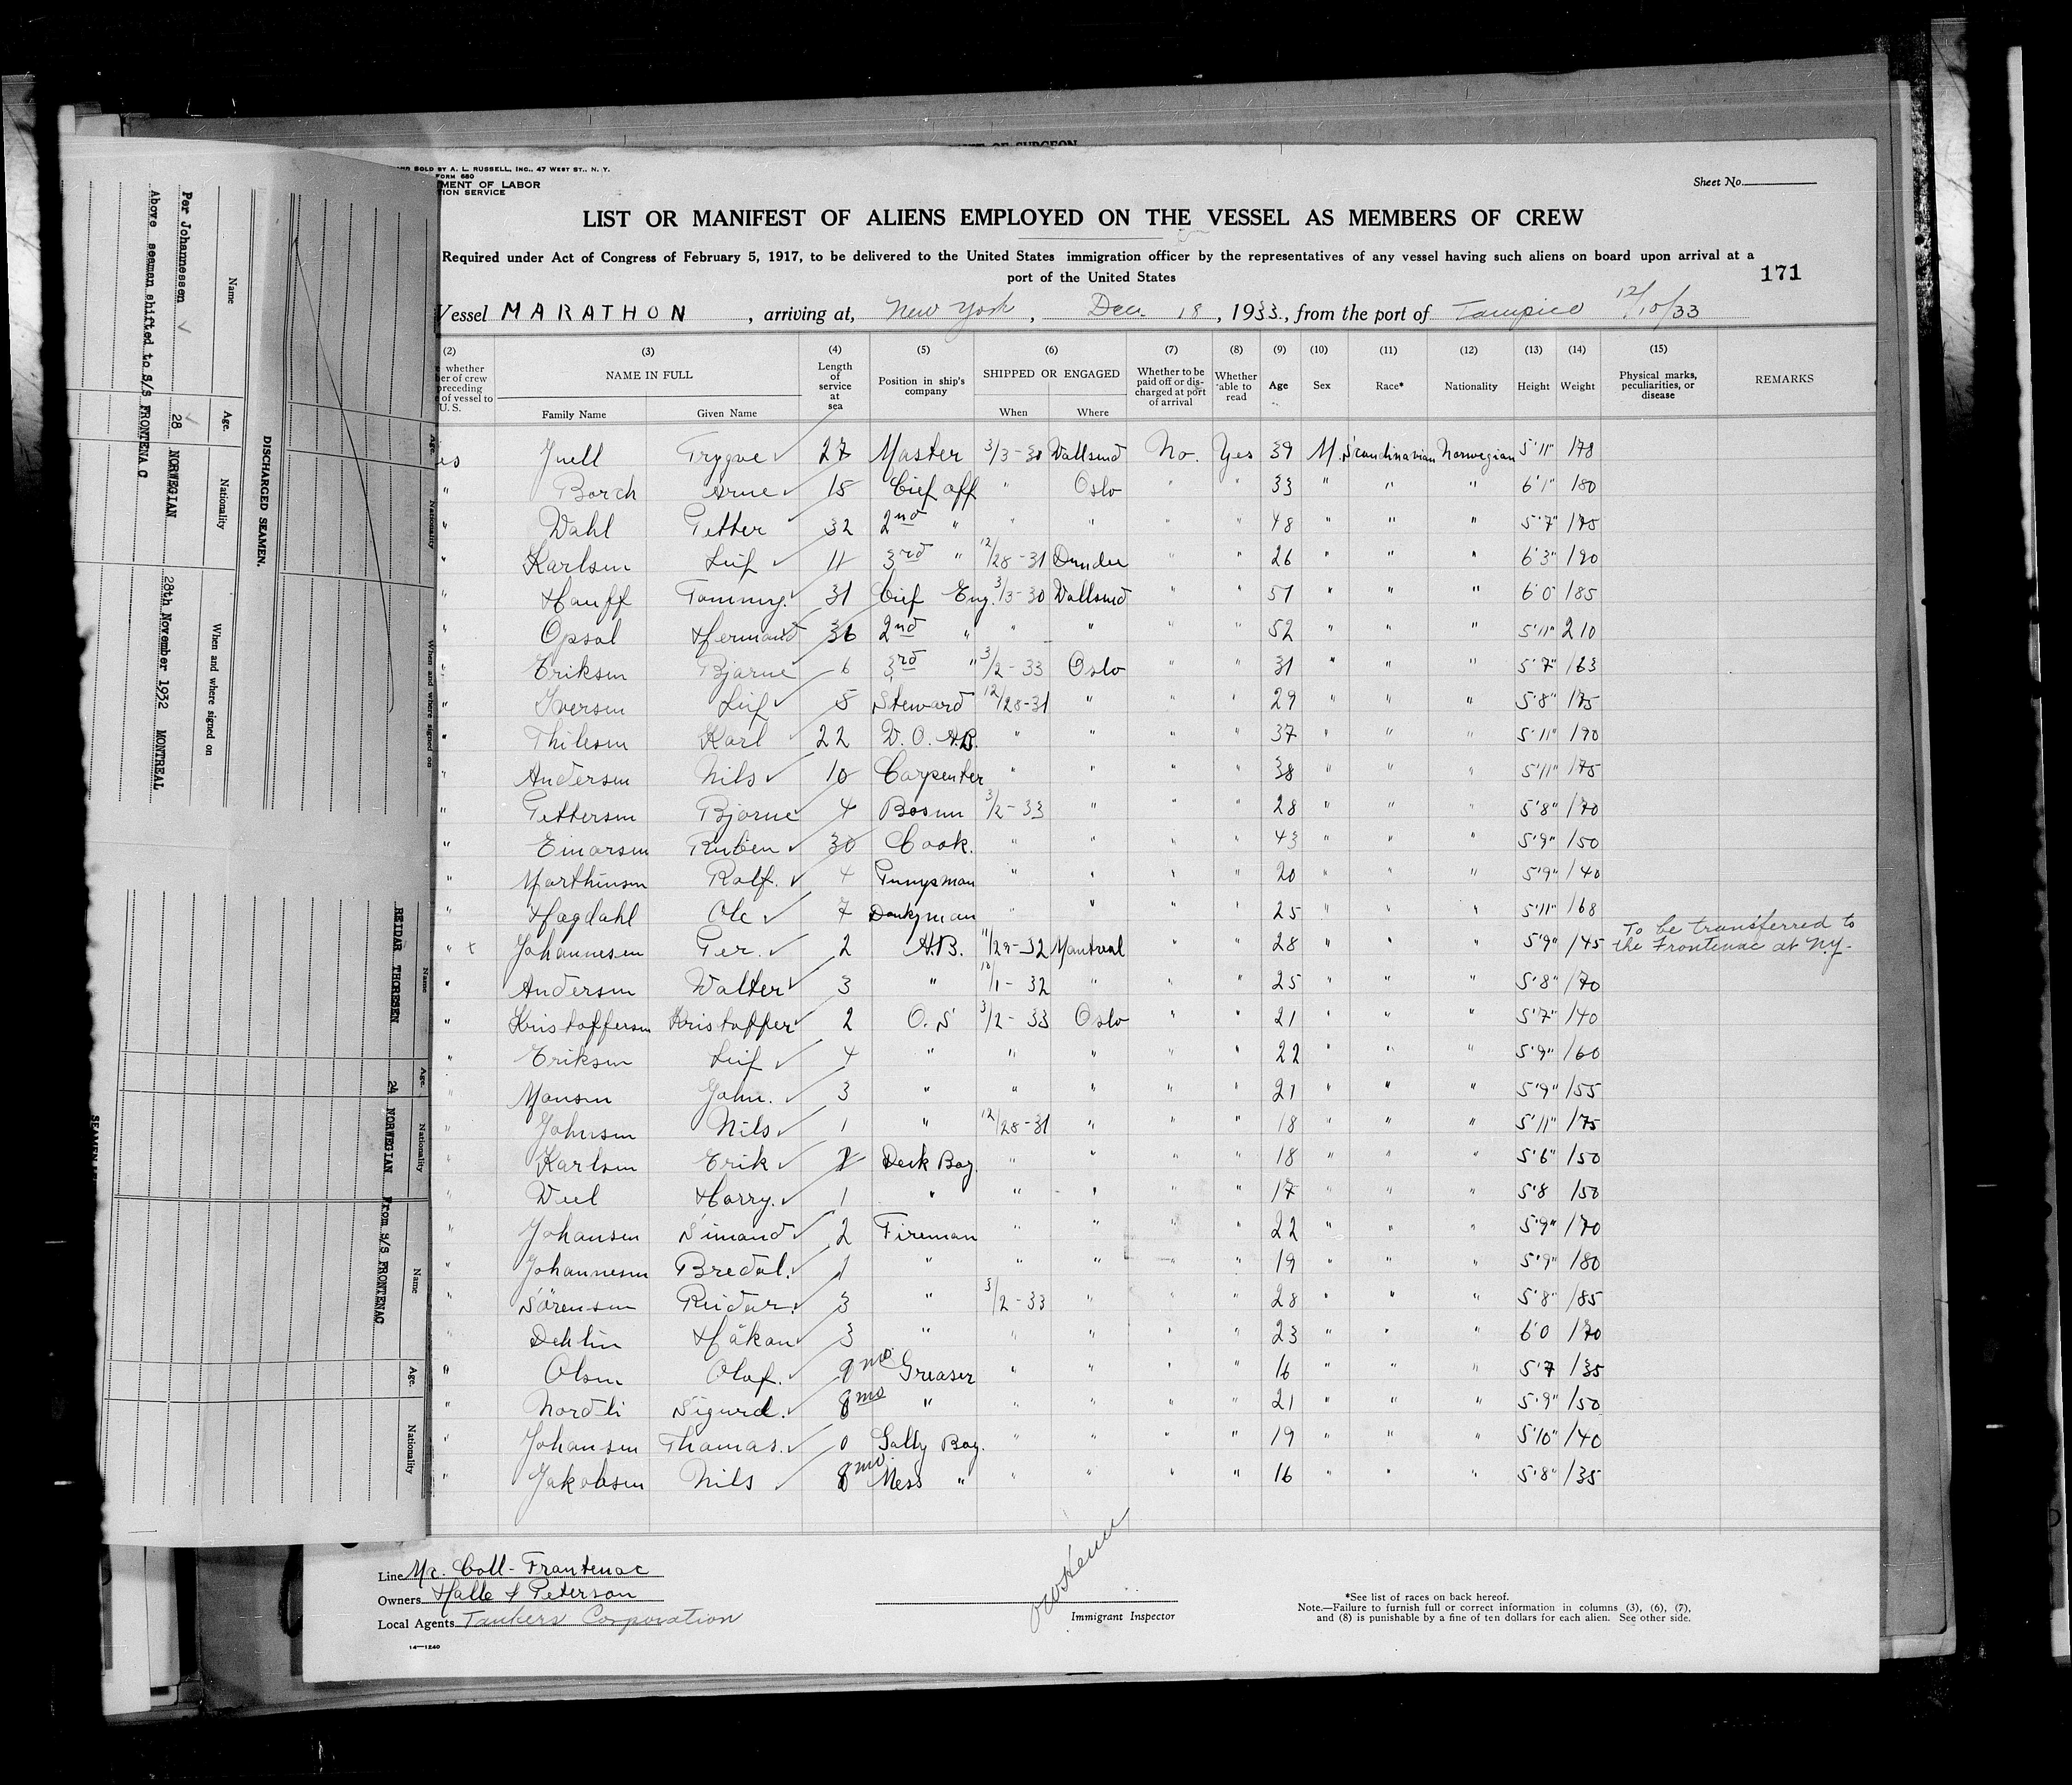 OF SURGEON
SOLD BY A. L. RUSSELL, INC., 47 WEST ST., N. Y.
FORM 680
MENT OF LABOR
TION SERVICE
Sheet No.
LIST OR MANIFEST OF ALIENS EMPLOYED ON THE VESSEL AS MEMBERS OF CREW
Required under Act of Congress of February 5, 1917, to be delivered to the United States immigration officer by the representatives of any vessel having such aliens on board upon arrival at a
port of the United States
171
Vessel MARATHON, arriving at, New York, Dec. 18, 1933., from the port of Tampico 12/10/33
(2) (3) (4) (5) (6) (7) (8) (9) (10) (11) (12) (13) (14) (15)
whether
ber of crew
preceding
of vessel to
U. S.
NAME IN FULL
Family Name Given Name
Length of service at sea
Position in ship's company
SHIPPED OR ENGAGED
When Where
Whether to be paid off or discharged at port of arrival
Whether able to read
Age Sex Race* Nationality Height Weight
Physical marks, peculiarities, or disease
REMARKS
Juell Trygve 27 Master 3/3-30 Wallsend No. Yes 39 M. Scandinavian Norwegian 5'11" 178
" Borch Arne 15 Cief off " Oslo " " 33 " " " 6'1" 180
" Wahl Petter 32 2nd " " " " " 48 " " " 5'7" 175
" Karlsen Leif 11 3rd " 12/28-31 Dundee " " 26 " " " 6'3" 190
" Hauff Tommy. 31 Cief Eng. 3/3-30 Wallsend " " 51 " " " 6'0" 185
" Opsal Hermand 36 2nd " " " " " 52 " " " 5'11" 210
" Eriksen Bjarne 6 3rd " 3/2-33 Oslo " " 31 " " " 5'7" 163
" Iversen Leif 5 Steward 12/28-31 " " " 29 " " " 5'8" 175
" Thilesen Karl 22 D.O. A.B. " " " " 37 " " " 5'11" 190
" Andersen Nils 10 Carpenter " " " " 38 " " " 5'11" 175
" Pettersen Bjarne 4 Bosun 3/2-33 " " " 28 " " " 5'8" 170
" Einarsen Ruben 30 Cook. " " " " 43 " " " 5'9" 150
" Marthinsen Rolf. 4 Pumpsman " " " " 20 " " " 5'9" 140
" Hagdahl Ole 7 Donkyman " " " " 25 " " " 5'11" 168
" x Johannesen Per. 2 A.B. 11/29-32 Montreal " " 28 " " " 5'9" 145 To be transferred to
the Frontenac at N.Y.
" Andersen Walter 3 " 10/1-32 " " " 25 " " " 5'8" 170
" Kristoffersen Kristoffer 2 O.S 3/2-33 Oslo " " 21 " " " 5'7" 140
" Eriksen Leif 4 " " " " " 22 " " " 5'9" 160
" Monsen John. 3 " " " " " 21 " " " 5'9" 155
" Johnsen Nils 1 " 12/28-31 " " " 18 " " " 5'11" 175
" Karlsen Erik Deck Boy. " " " " 18 " " " 5'6" 150
" Harry. 1 " " " " " 17 " " " 5'8 150
" Johansen Simand 2 Fireman " " " " 22 " " " 5'9" 170
" Johannesen Bredal. 1 " " " " " 19 " " " 5'9" 180
" Sörensen Reidar. 3 " 3/2-33 " " " 28 " " " 5'8" 185
" Dehlin Håkan 3 " " " " " 23 " " " 6'0 170
" Olsen Olaf. 9 mo. Greaser " " " " 16 " " " 5'7 135
" Nordli Sigurd. 8 mo " " " " " 21 " " " 5'9" 150
" Johansen Thomas. 0 Gally Boy. " " " " 19 " " " 5'10" 140
" Jakobsen Nils 8 mo. Mess " " " " " 16 " " " 5'8" 135
Line Mc. Coll-Frontenac
Owners Halle & Peterson
Local Agents Tankers Corporation
14—1240
Immigrant Inspector
*See list of races on back hereof.
Note.—Failure to furnish full or correct information in columns (3), (6), (7),
and (8) is punishable by a fine of ten dollars for each alien. See other side.
DISCHARGED SEAMEN.
Name Age. Nationality When and where signed on
Per Johannessen 28 NORWEGIAN 28th November 1932 MONTREAL
Above seaman shifted to S/S FRONTENAC
Age. Nationality When and where signed on
Name Age. Nationality Name Age. Nationality
REIDAR THORESEN 24 NORWEGIAN From S/S FRONTENAC